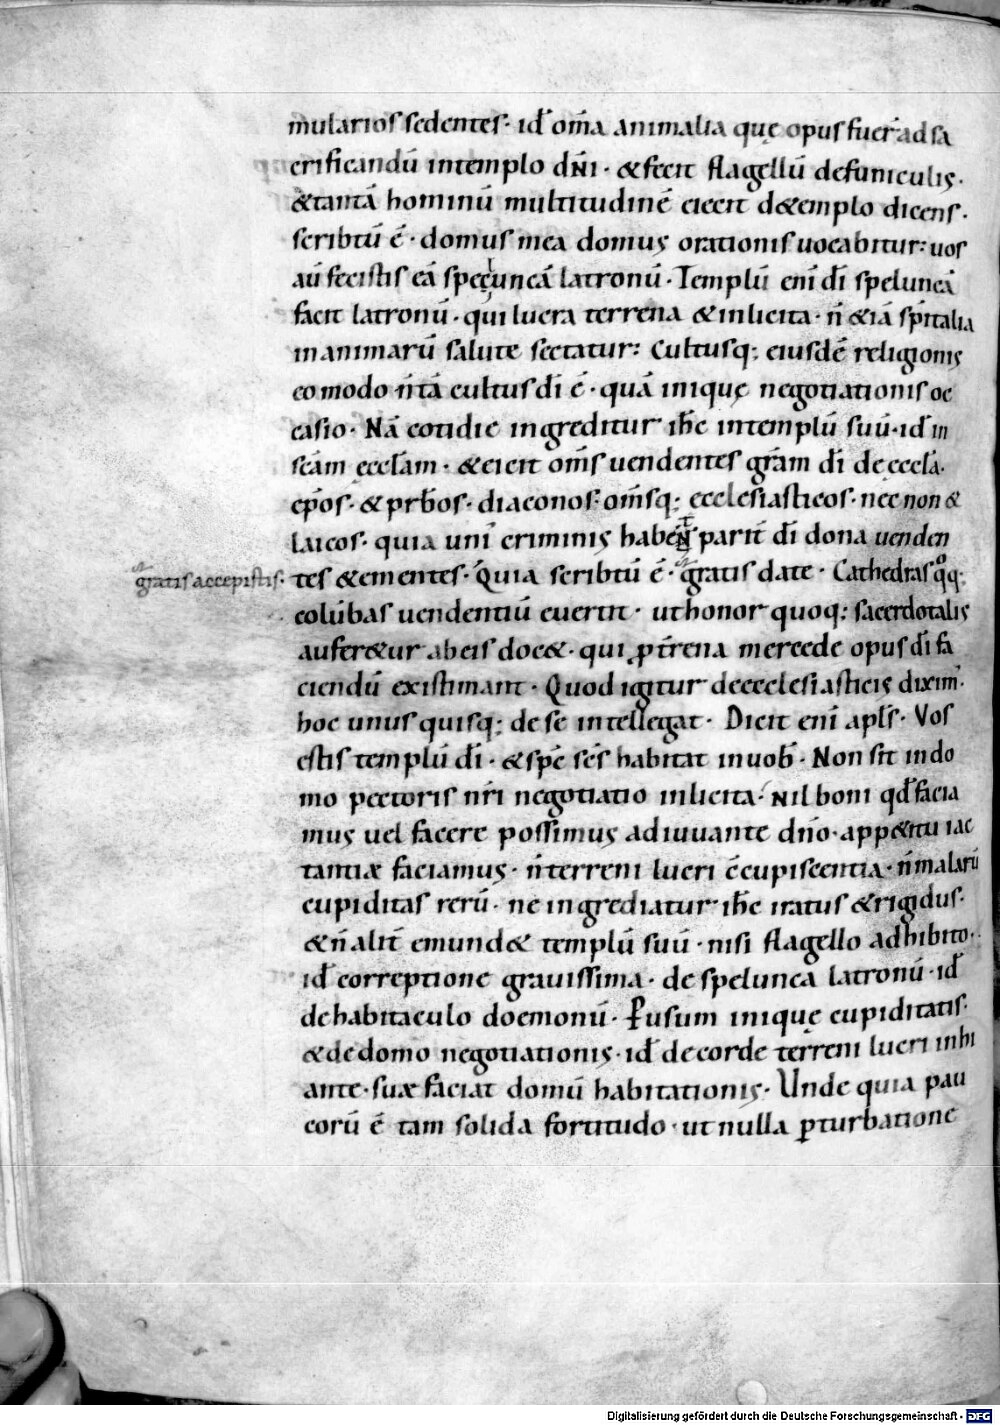 mularios sedentes· id̄ om̄a animalia quę opus fuer̄ ad sa
crificandū in templo dn̄i· & fecit flagellū de funiculis·
& tantā hominū multitudinē eiecit de templo dicens·
scribtū ē· domus mea domus orationis uocabitur: uos
aū fecistis eā speluncā latronū· Templū eni di speluncā
facit latronū· qui lucra terrena & inlicita· n̄ & iā spi̅talia
in animarū salute sectatur: Cultusq; eiusdē religionis
eo modo n̄ tā cultus di ē· quā iniquę negotiationis oc
casio· Nā cotidie ingreditur ihc in templū suū· id̄ in
scām eccl̄am· & eicit om̄s uendentes gr̄am di de eccl̄a·
ep̄os· & pr̄bos· diaconos· om̄sq; ecclesiasticos· nec non &
laicos· quia uni criminis habent parit̄ di dona uenden
gratis accepistis·
tes & ementes· Quia scribtū ē· gratis date· Cathedras qq;
colūbas uendentiū euertit· ut honor quoq; sacerdotalis
auferetur ab eis docet· qui p t̄rena mercede opus di fa
ciendū existimant· Quod igitur de ecclesiasticis dixim'
hoc unus quisq; de se intellegat· Dicit eni apl̄s· Vos
estis templū di· & sp̄c sc̄s habitat in uob̄· Non sit in do
mo pectoris nr̄i negotiatio inlicita· Nil boni qd̄ facia
mus uel facere possimus adiuuante dn̄o· appetitu iac
tantiæ faciamus· n̄ terreni lucri c̄cupiscentia· n̄ malarū
cupiditas rerū· ne ingrediatur ihc iratus & rigidus·
& n̄ alit̄ emundet templū suū· nisi flagello adhibito·
id̄ correptione grauissima· de spelunca latronū· id̄
de habitaculo doemonū· P usum iniquę cupiditatis·
& de domo negotiationis· id̄ de corde terreni lucri inhi
ante· suæ faciat domū habitationis· Unde quia pau
corū ē tam solida fortitudo· ut nulla pturbatione
Digitalisierung gefördert durch die Deutsche Forschungsgemeinschaft - DFG